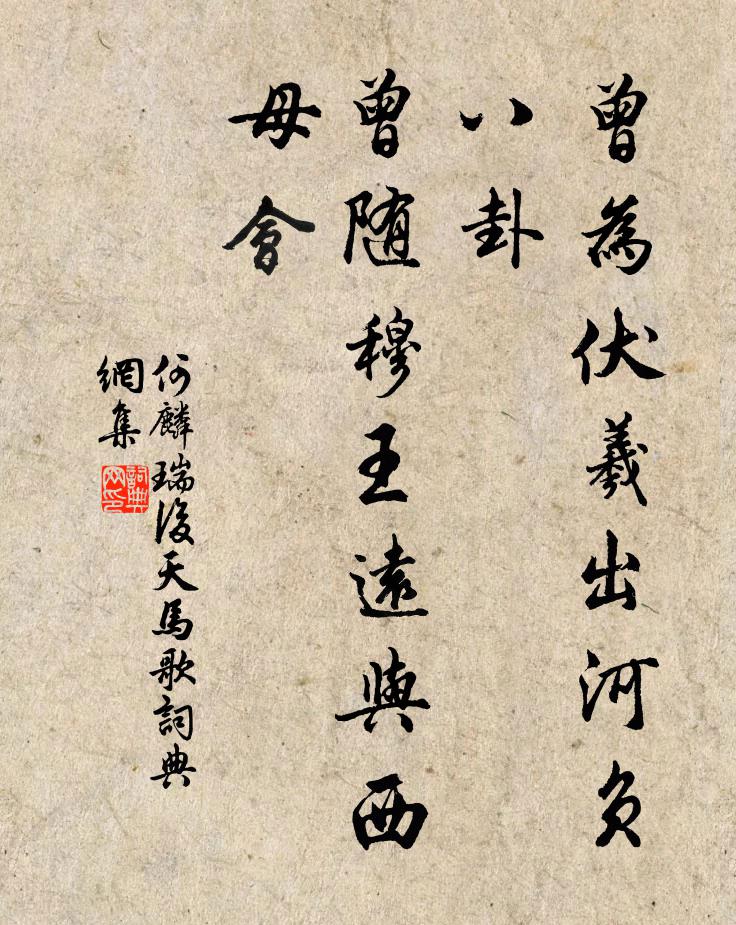 曾為伏羲出河負
八卦
曾随穆王遠與西
母會
何麟瑞後天馬歌詞典
網集
詞典
网印